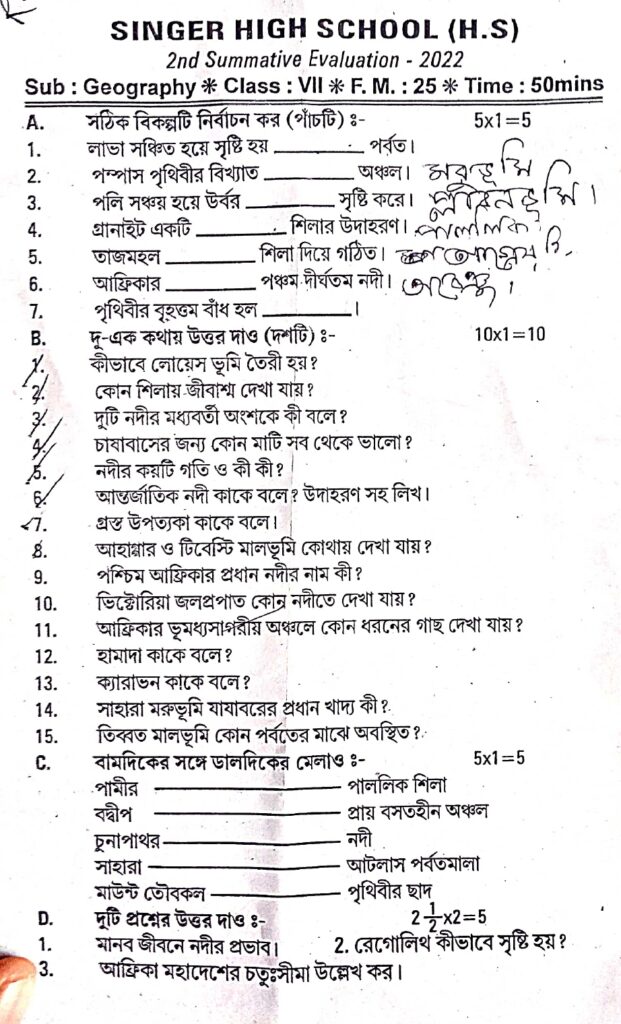 SINGER HIGH SCHOOL (H.S)
2nd Summative Evaluation - 2022
Sub : Geography ✳ Class : VII ✳ F. M. : 25 ✳ Time : 50mins
A. সঠিক বিকল্পটি নির্বাচন কর (পাঁচটি) ঃ- 5x1=5
1. লাভা সঞ্চিত হয়ে সৃষ্টি হয় __________ পর্বত।
2. পম্পাস পৃথিবীর বিখ্যাত __________ অঞ্চল। মরুভূমি
3. পলি সঞ্চয় হয়ে উর্বর __________ সৃষ্টি করে। প্লাবনভূমি।
4. গ্রানাইট একটি __________ শিলার উদাহরণ। পাললিক
5. তাজমহল __________ শিলা দিয়ে গঠিত। আগ্নেয়
6. আফ্রিকার __________ পঞ্চম দীর্ঘতম নদী।
7. পৃথিবীর বৃহত্তম বাঁধ হল __________।
B. দু-এক কথায় উত্তর দাও (দশটি) ঃ- 10x1=10
1. কীভাবে লোয়েস ভূমি তৈরী হয়?
2. কোন শিলায় জীবাশ্ম দেখা যায়?
3. দুটি নদীর মধ্যবর্তী অংশকে কী বলে?
4. চাষাবাসের জন্য কোন মাটি সব থেকে ভালো?
5. নদীর কয়টি গতি ও কী কী?
6. আন্তর্জাতিক নদী কাকে বলে? উদাহরণ সহ লিখ।
7. গ্রস্ত উপত্যকা কাকে বলে।
8. আহাগ্গার ও টিবেস্টি মালভূমি কোথায় দেখা যায়?
9. পশ্চিম আফ্রিকার প্রধান নদীর নাম কী?
10. ভিক্টোরিয়া জলপ্রপাত কোন নদীতে দেখা যায়?
11. আফ্রিকার ভূমধ্যসাগরীয় অঞ্চলে কোন ধরনের গাছ দেখা যায়?
12. হামাদা কাকে বলে?
13. ক্যারাভন কাকে বলে?
14. সাহারা মরুভূমি যাযাবরের প্রধান খাদ্য কী?
15. তিব্বত মালভূমি কোন পর্বতের মাঝে অবস্থিত?
C. বামদিকের সঙ্গে ডানদিকের মেলাও ঃ- 5x1=5
পামীর __________ পাললিক শিলা
বদ্বীপ __________ প্রায় বসতহীন অঞ্চল
চুনাপাথর __________ নদী
সাহারা __________ আটলাস পর্বতমালা
মাউন্ট তৌবকল __________ পৃথিবীর ছাদ
D. দুটি প্রশ্নের উত্তর দাও ঃ- 2 1/2x2=5
1. মানব জীবনে নদীর প্রভাব। 2. রেগোলিথ কীভাবে সৃষ্টি হয়?
3. আফ্রিকা মহাদেশের চতুঃসীমা উল্লেখ কর।